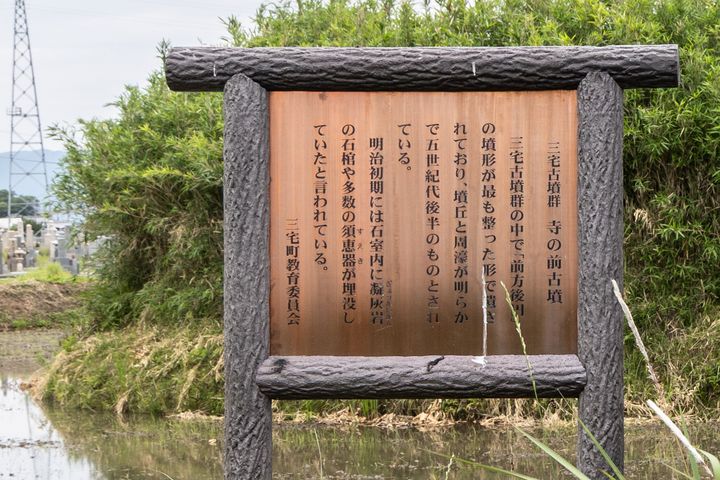 三宅古墳群　寺の前古墳
三宅古墳群の中で「前方後円
の墳形が最も整った形で遺さ
れており、墳丘と周濠が明らか
で五世紀代後半のものとされ
ている。
明治初期には石室内に凝灰岩
の石棺や多数の須恵器が埋没し
すえき
ていたと言われている。
三宅町教育委員会